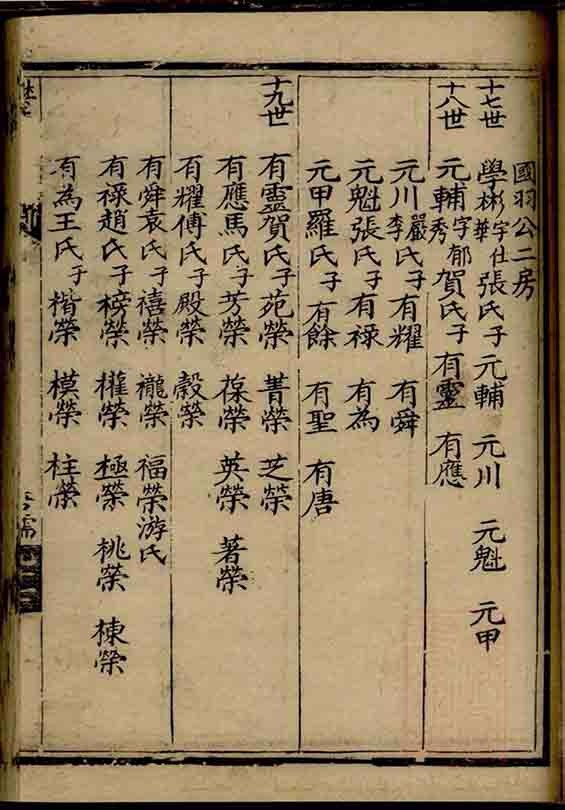 國羽公二房
十七世 學彬字仕華張氏子元輔 元川 元魁 元甲
十八世 元輔字郁秀賀氏子有靈 有應
元川嚴李氏子有耀 有舜
元魁張氏子有祿 有為
元甲羅氏子有餘 有聖 有唐
十九世 有靈賀氏子苑榮 菁榮 芝榮
有應馬氏子芳榮 葆榮 英榮 著榮
有耀傅氏子殿榮 榖榮
有舜袁氏子禧榮 福榮游氏
有祿趙氏子榜榮 權榮 極榮 桃榮 棟榮
有為王氏子楷榮 模榮 柱榮